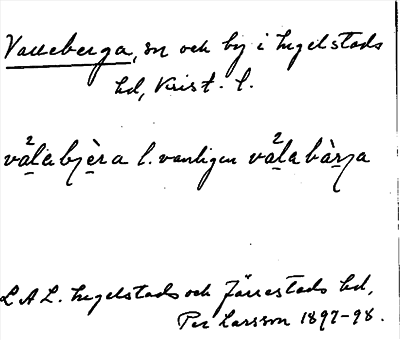 Valleberga, sn och by i Ingelstads
hd, Krist. l.
vålabjèra l. vanligen vålabàrja
LAL. Ingelstads och Järrestads hd,
Per Larsson 1897-98.